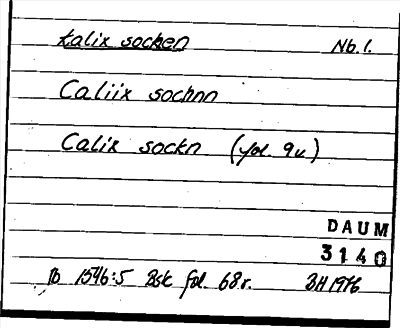 Kalix socken Nb.l.
Caliix sochnn
Calix sockn (fol. 9v)
DAUM
3140
Tb 1546:5 Bsk fol. 68r. BH 1976